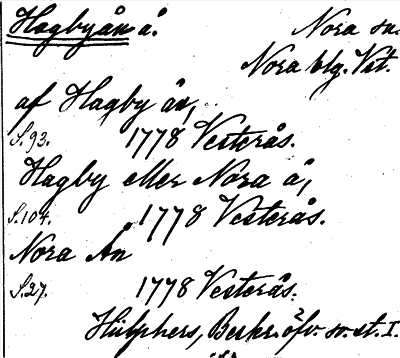 Hagbyån å. Nora sn.
Nora blg. Vst.
af Hagby ån,
S. 93. 1778 Vesterås.
Hagby eller Nora å,
S. 104. 1778 Vesterås.
Nora Ån
S. 27. 1778 Vesterås.
Hülphers, Beskr. öfv. sv. st. I.